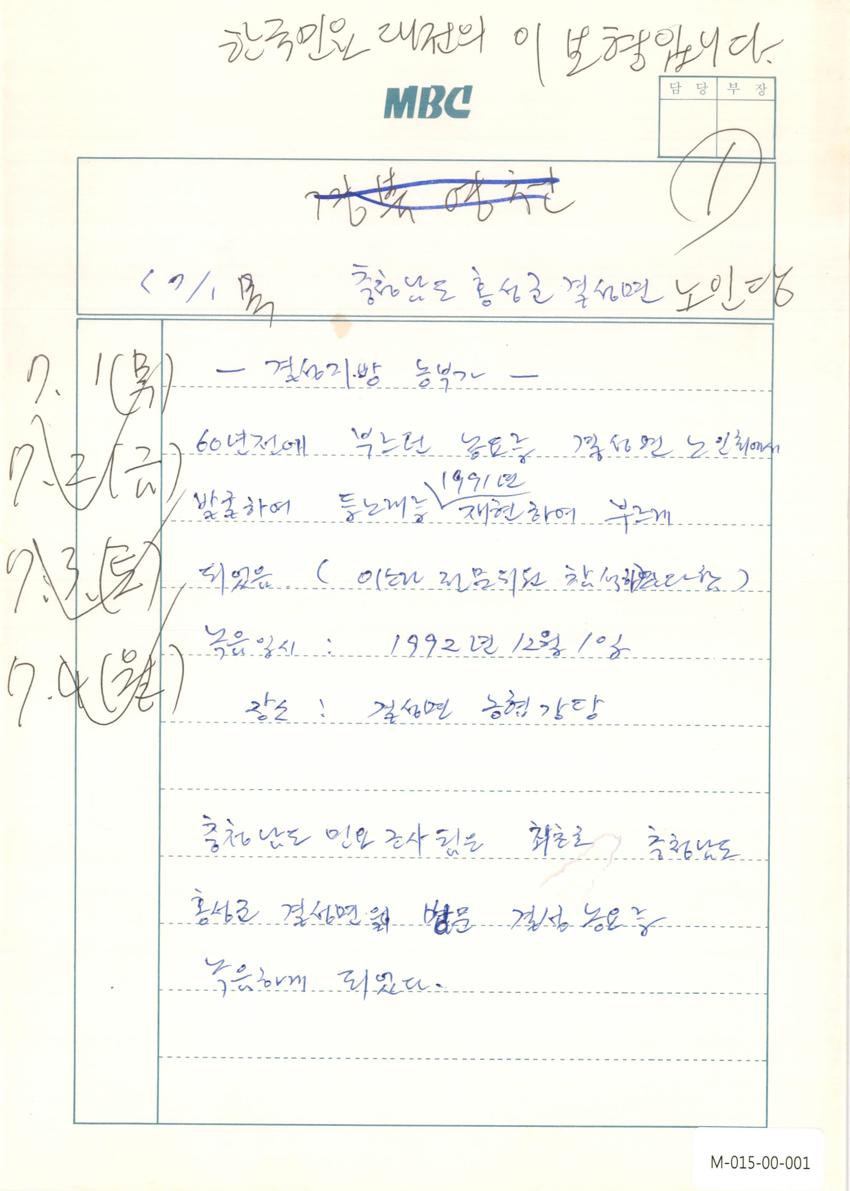 한국민요 대전의 이보형입니다.
MBC
담당 부장
①
경북 영주군
< 7/1 목 충청남도 홍성군 결성면 노인당
7. 1(목)
— 결성지방 농부가 —
7. 2(금)
60년전에 부르던 농요를 결성면 노인회에서
1991년
발굴하여 등노래를 재현하여 부르게
7. 3.(토)
되었음. (
녹음일시 : 1992년 12월 1일
7. 4(월)
장소 : 결성면 농협강당
충청남도 민요조사팀은 최초로 충청남도
홍성군 결성면을 방문 결성농요를
녹음하게 되었다.
M-015-00-001